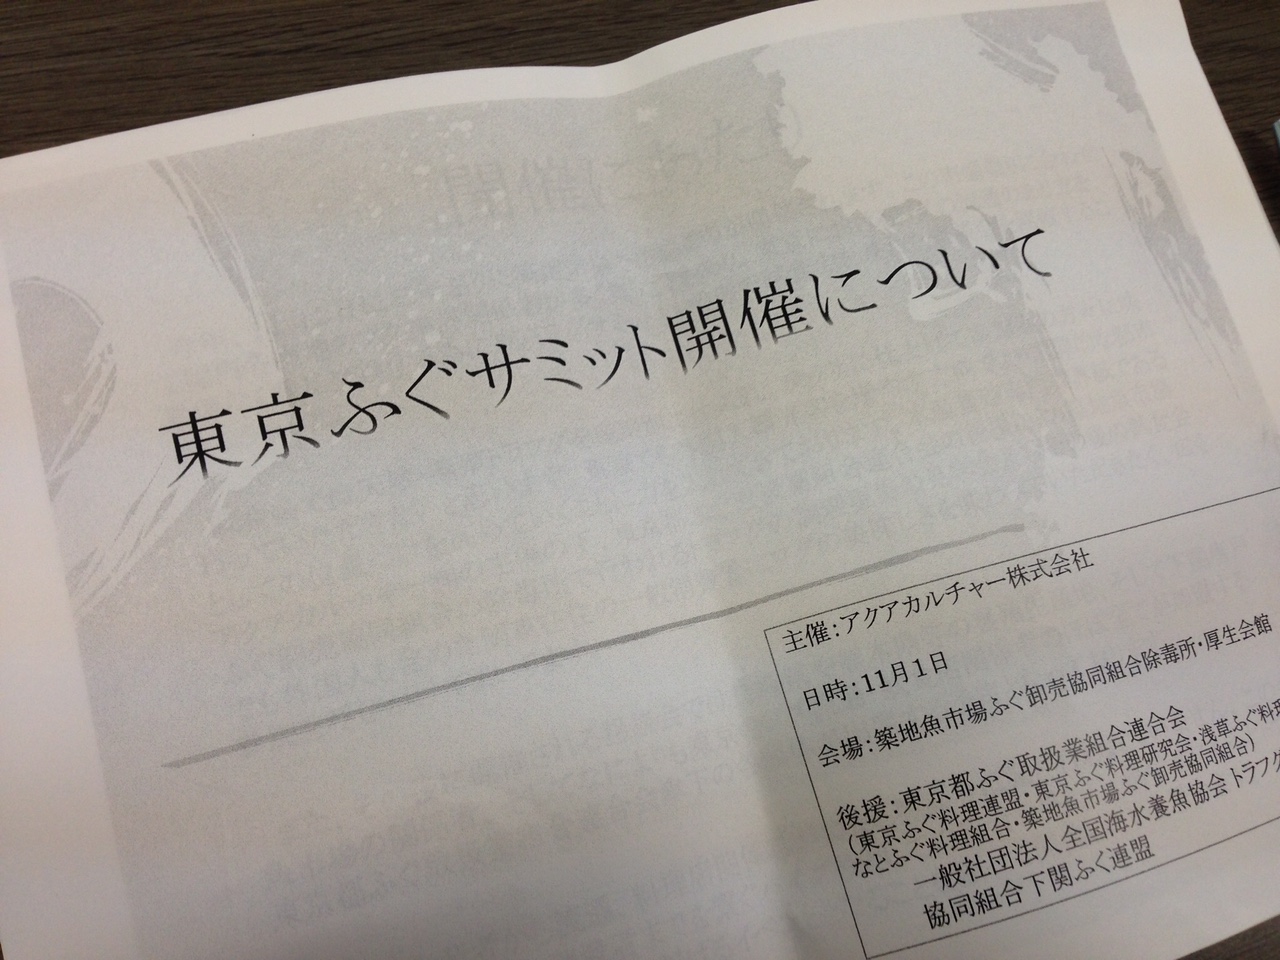 東京ふぐサミット開催について
主催：アクアカルチャー株式会社
日時：11月1日
会場：築地魚市場ふぐ卸売協同組合除毒所・厚生会館
後援：東京都ふぐ取扱業組合連合会
（東京ふぐ料理連盟・東京ふぐ料理研究会・浅草ふぐ料理
なとふぐ料理組合・築地魚市場ふぐ卸売協同組合）
一般社団法人全国海水養魚協会 トラフグ
協同組合下関ふく連盟